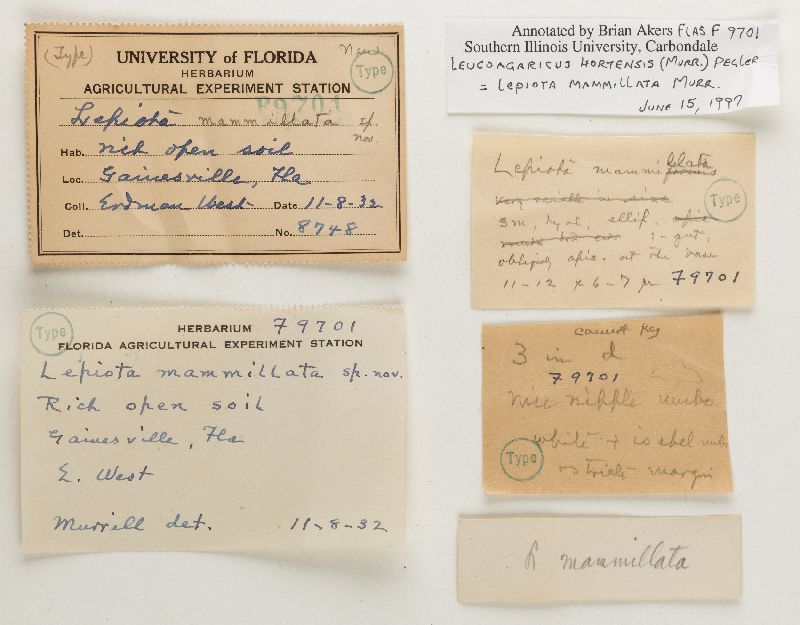 (Type)
UNIVERSITY of FLORIDA
HERBARIUM
Type
AGRICULTURAL EXPERIMENT STATION
F9701
Lepiota mammillata sp. nov.
Hab. rich open soil
Loc. Gainesville, Fla
Coll. Erdman West Date 11-8-32
Det. No. 8748
Type
HERBARIUM F9701
FLORIDA AGRICULTURAL EXPERIMENT STATION
Lepiota mammillata sp. nov.
Rich open soil
Gainesville, Fla
E. West
Murrill det. 11-8-32
Annotated by Brian Akers FLAS F 9701
Southern Illinois University, Carbondale
LEUCOAGARICUS HORTENSIS (MURR.) PEGLER
= LEPIOTA MAMMILLATA MURR.
JUNE 15, 1997
Lepiota mammillata
very in size
Type
sm, hyal, ellip,
1-gut,
obliquely apic. at the base
11-12 x 6-7 µ F9701
cannot key
3 in d
F9701
nice nipple umbo
white + isabel umbo
Type
striate margin
mammillata